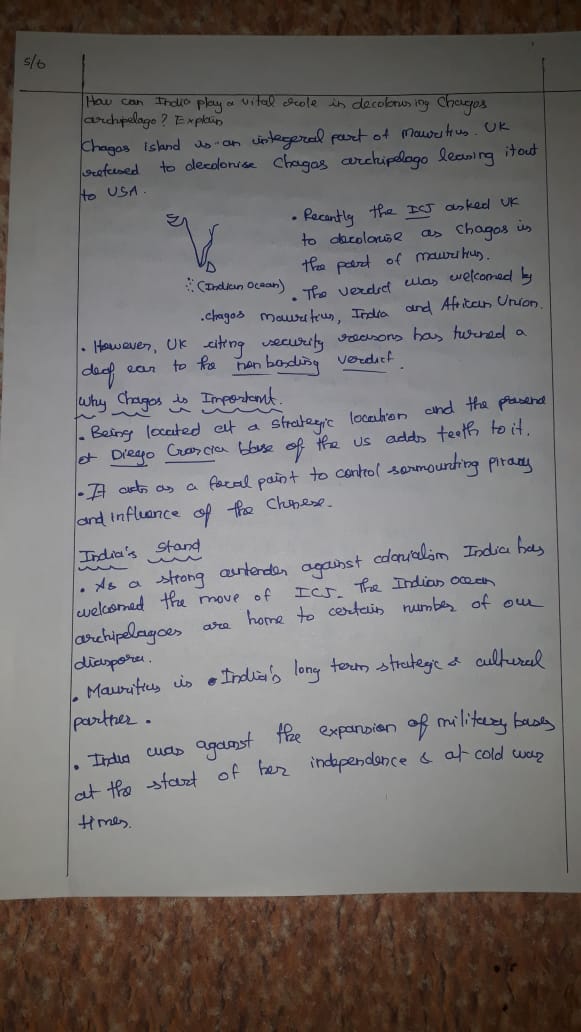 5/6
How can India play a vital role in decolonising Chagos
archipelago? Explain
Chagos island is an integeral part of Mauritius. UK
refused to decolonise Chagos archipelago leasing it out
to USA.
• Recently the ICJ asked UK
to decolonise as Chagos is
the part of mauritius.
(Indian Ocean)
• The verdict was welcomed by
.chagos mauritius, India and African Union.
• However, UK citing security reasons has turned a
deaf ear to the non binding verdict.
Why Chagos is Important.
• Being located at a strategic location and the presence
of Diego Grancia base of the US adds teeth to it.
• It acts as a focal point to control sormounting piracy
and influence of the Chinese.
India's Stand
• As a strong contender against colonialism India has
welcomed the move of ICJ. The Indian ocean
archipelagoes are home to certain number of our
diaspora.
• Mauritius is India's long term strategic & cultural
partner.
• India was against the expansion of military bases
at the start of her independence & at cold war
times.